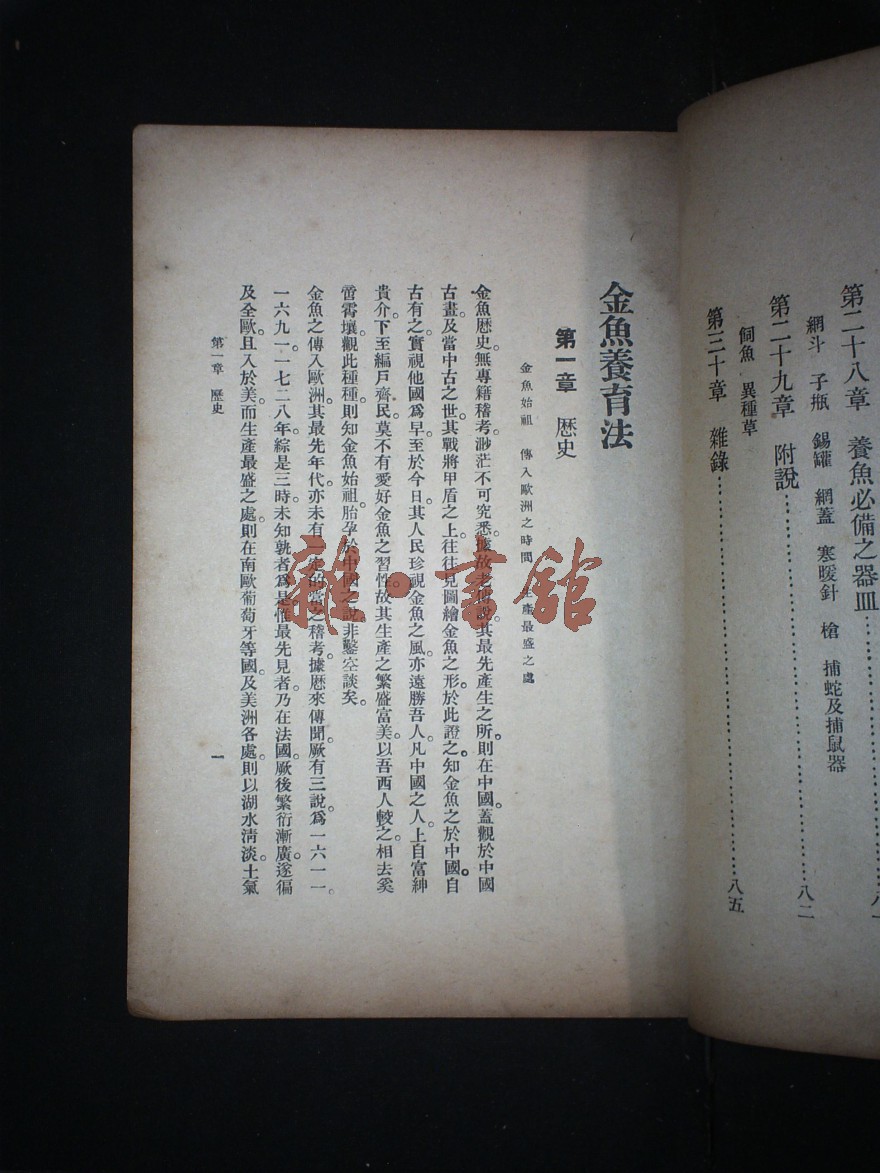 第二十八章 養魚必備之器皿……………八一
網斗 子瓶 錫罐 網蓋 寒暖針 槍 捕蛇及捕鼠器
第二十九章 附說……………八二
飼魚 異種草
第三十章 雜錄……………八五
金魚養育法
第一章 歷史
金魚始祖 傳入歐洲之時間 生產最盛之處
金魚歷史。無專籍稽考。渺茫不可究悉。據故老傳說。其最先產生之所。則在中國。蓋觀於中國
古畫。及當中古之世。其戰將甲盾之上。往往見圖繪金魚之形。於此證之。知金魚之於中國。自
古有之。實視他國爲早。至於今日。其人民珍視金魚之風。亦遠勝吾人。凡中國之人。上自富紳
貴介。下至編戶齊民。莫不有愛好金魚之習性。故其生產之繁盛富美。以吾西人較之。相去奚
啻霄壤。觀此種種。則知金魚始祖。胎孕於中國之說。非鑿空談矣。
金魚之傳入歐洲。其最先年代。亦未有一定的當之稽考。據歷來傳聞。厥有三說。爲一六一一
一六九一一七二八年。綜是三時。未知孰者爲是。惟最先見者。乃在法國。厥後繁衍漸廣。遂徧
及全歐。且入於美。而生產最盛之處。則在南歐葡萄牙等國。及美洲各處。則以湖水清淡。土氣
第一章 歷史
一
雜·書館